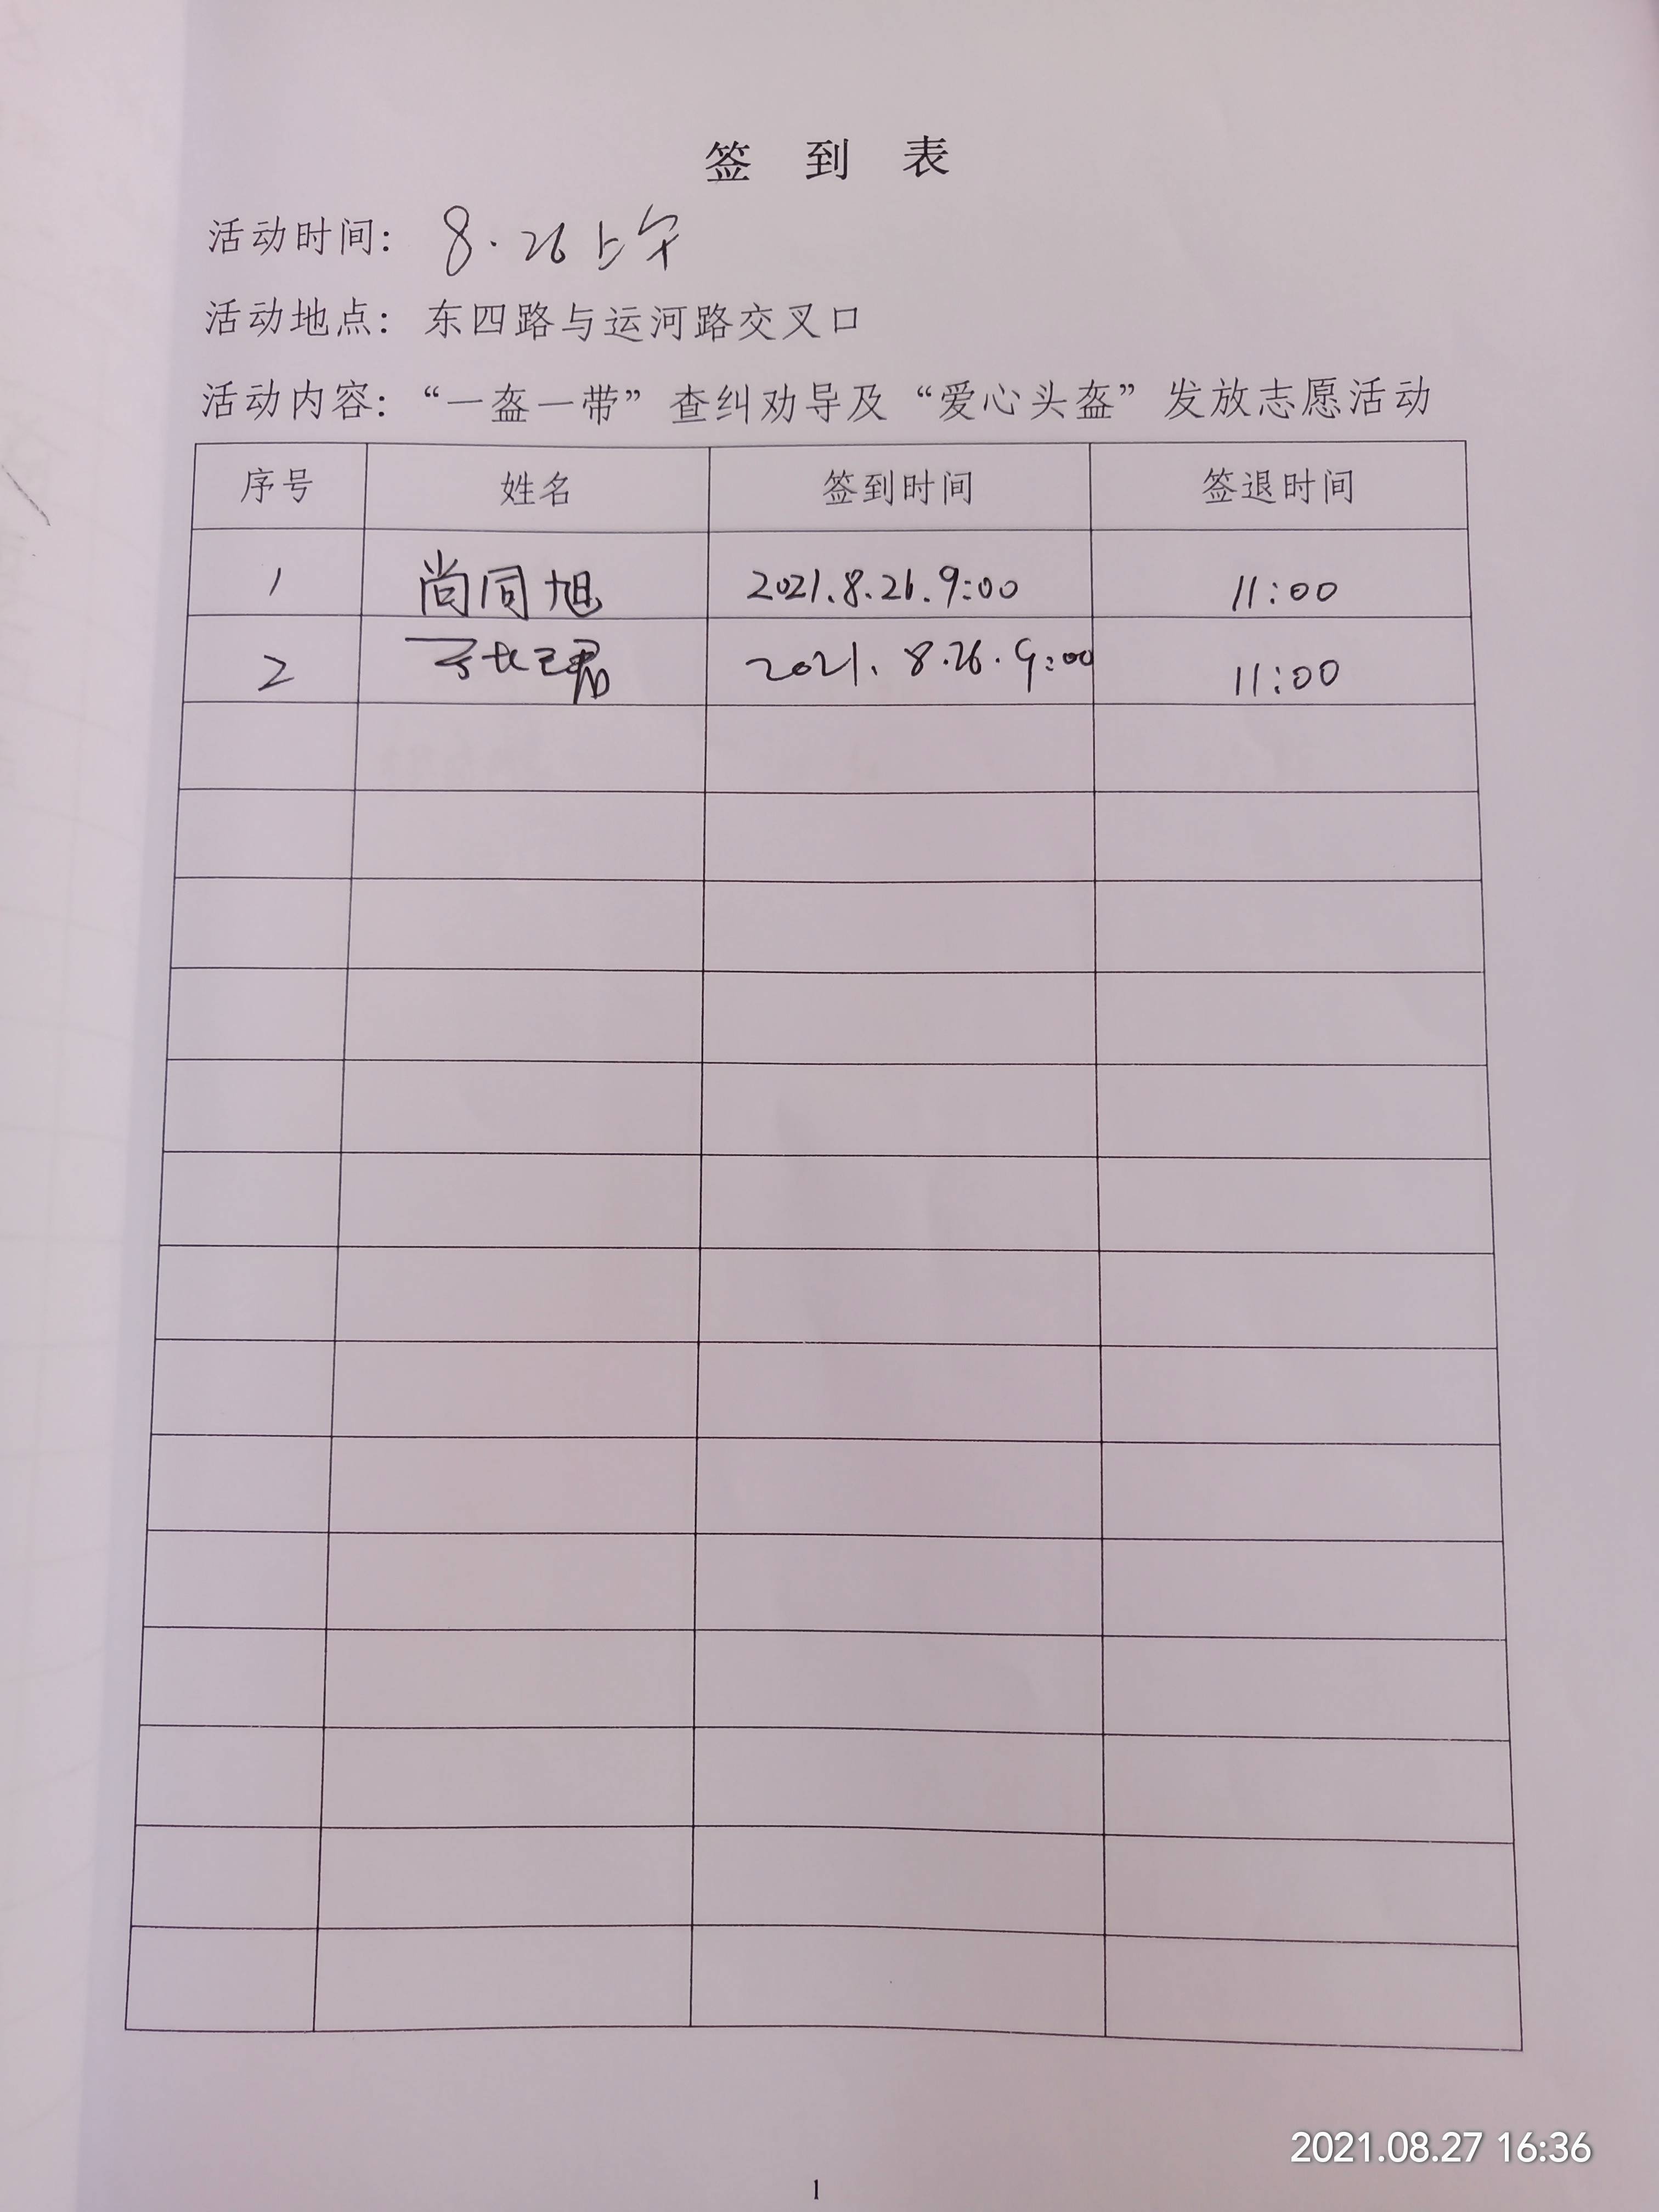 签 到 表
活动时间: 8.26上午
活动地点: 东四路与运河路交叉口
活动内容: “一盔一带”查纠劝导及“爱心头盔”发放志愿活动
序号 姓名 签到时间 签退时间
1 尚同旭 2021.8.26.9:00 11:00
2 2021.8.26.9:00 11:00
2021.08.27 16:36
1